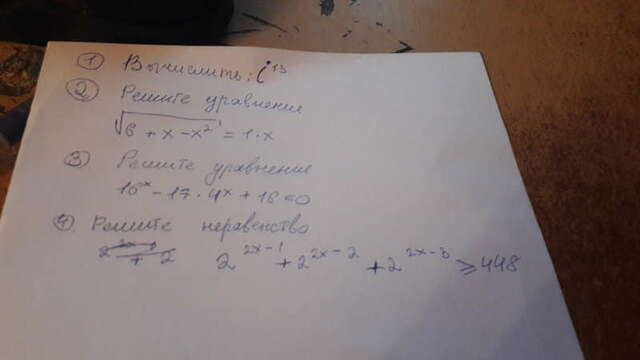 1 Вычислить: i¹³
2 Решите уравнение
√6 + x - x² = 1·x
3. Решите уравнение
16ˣ - 17·4ˣ + 16 = 0
4). Решите неравенство
2²ˣ⁻¹ + 2²ˣ⁻² + 2²ˣ⁻³ ≥ 448